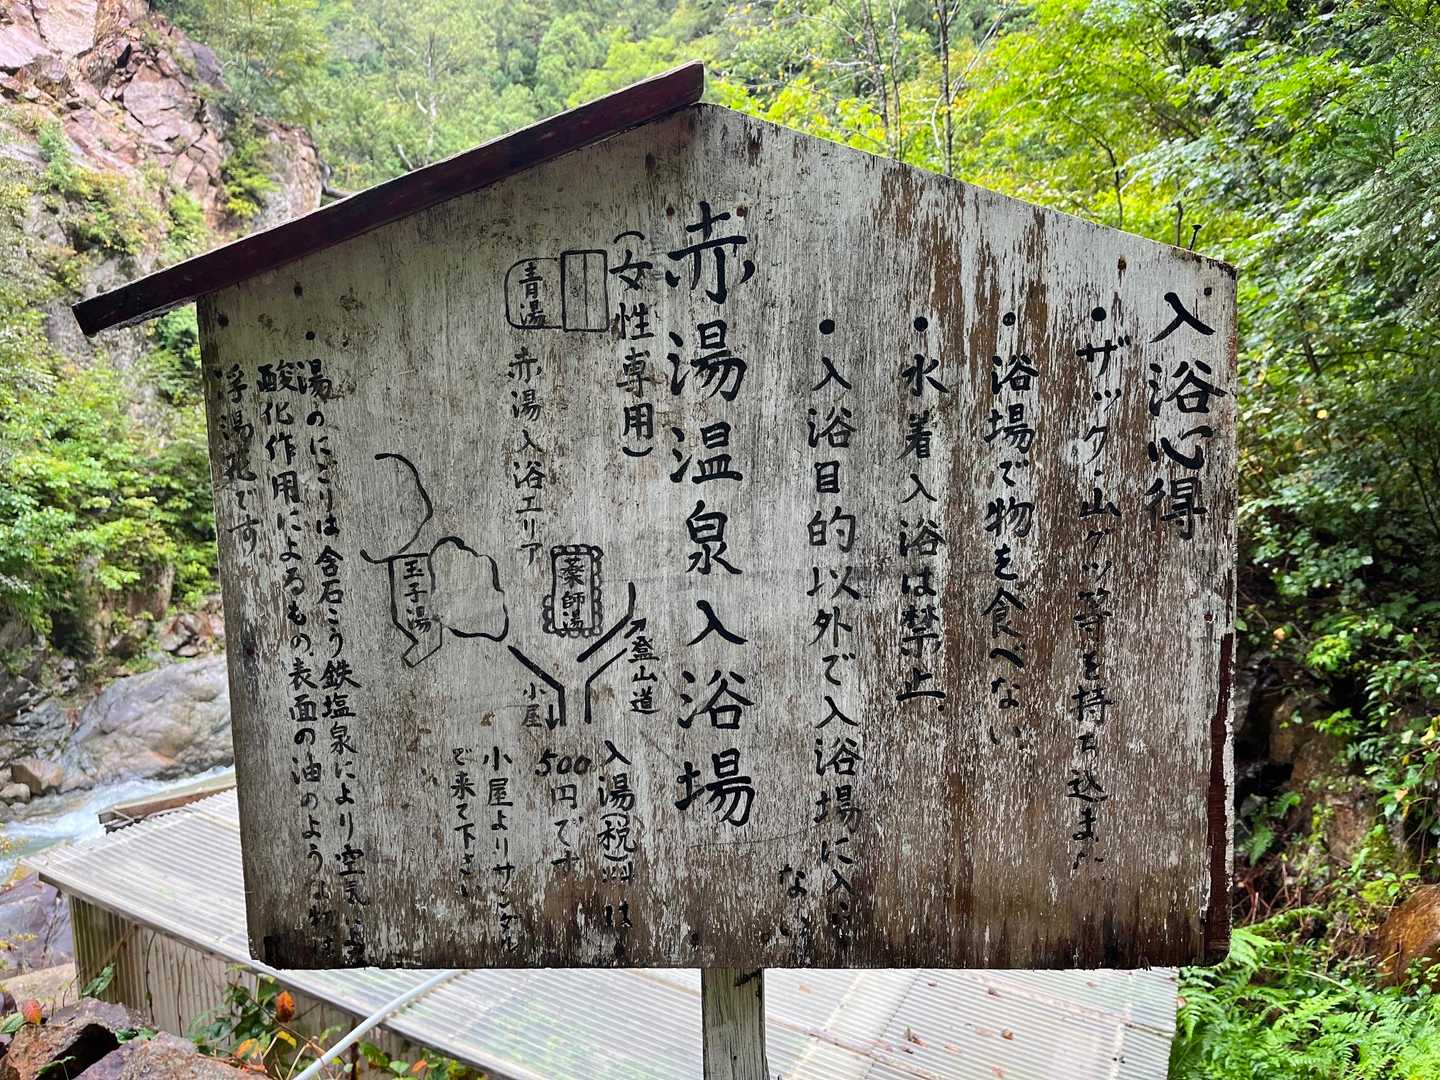 入浴心得
・ザック・山グツ等を持ち込ま
・浴場で物を食べない
・水着入浴は禁止
・入浴目的以外で入浴場に入ら
ない
赤湯温泉入浴場
(女性専用)
青湯
赤湯入浴エリア
薬師湯
玉子湯
登山道
小屋
入湯(税)料は
500円です
小屋よりサンダル
で来て下さい
・湯のにごりは含石こう鉄塩泉により空気
酸化作用によるもの、表面の油のような物は
浮湯花です